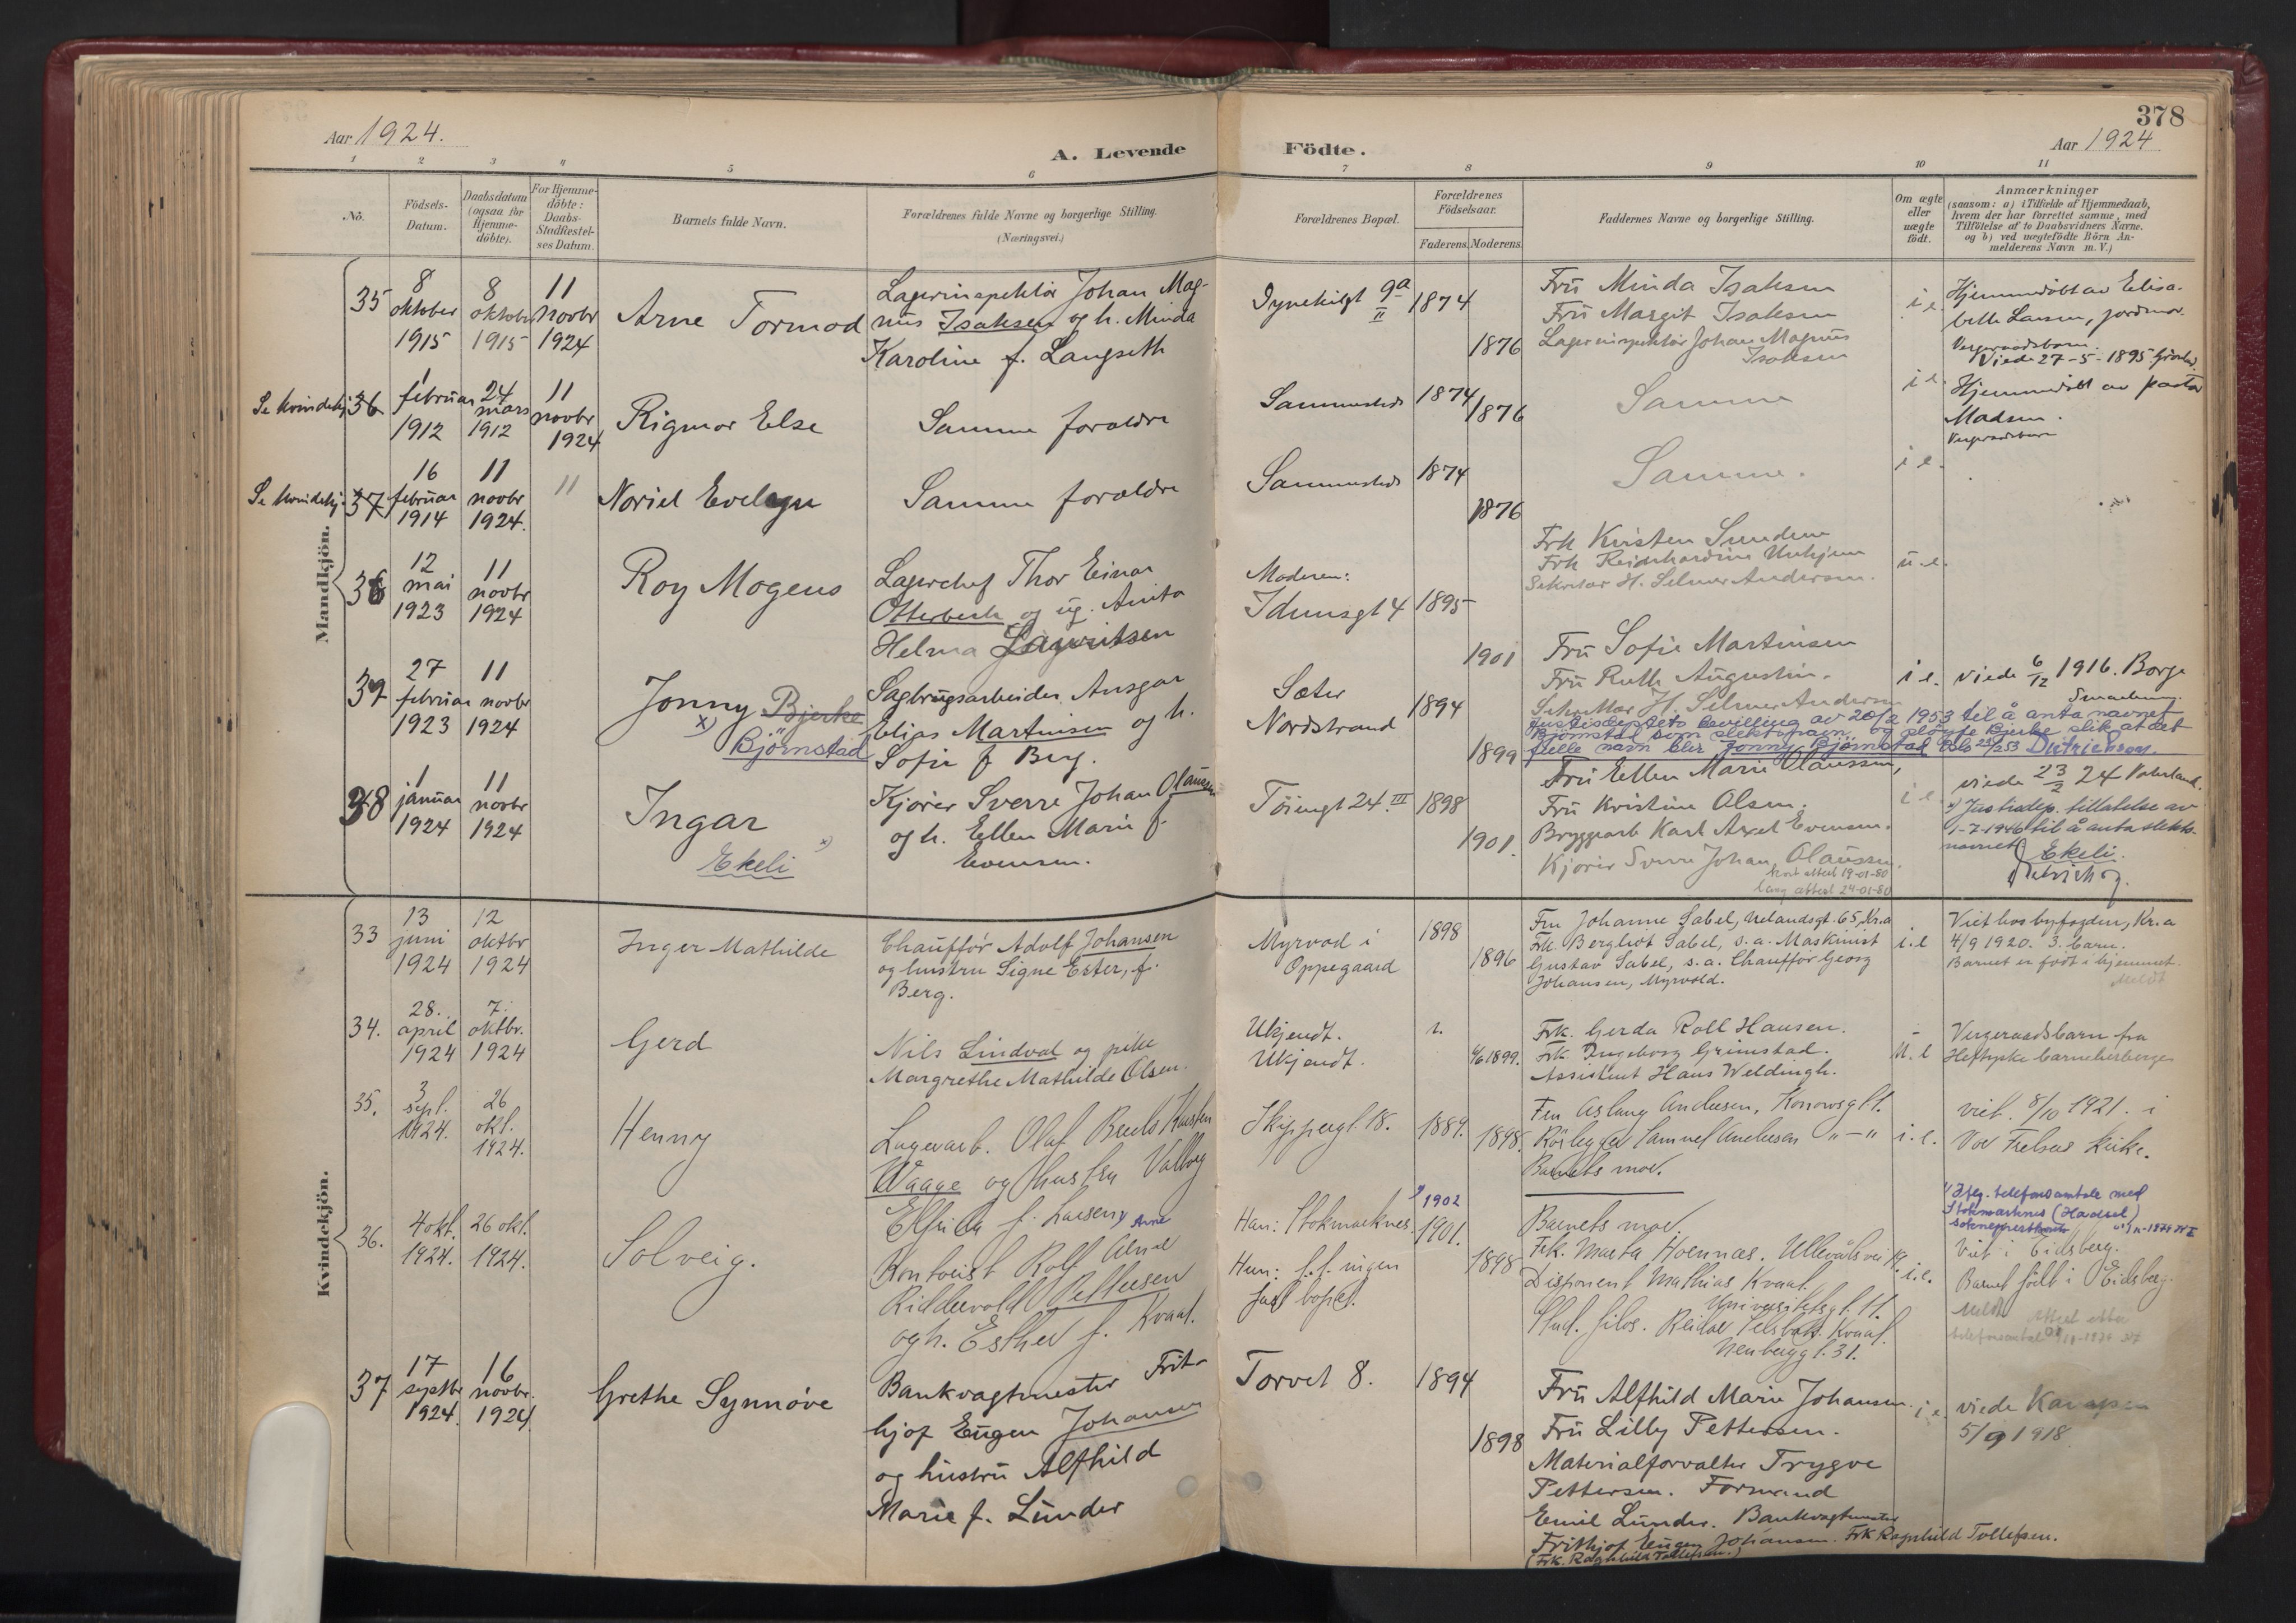 378
Aar 1924.
A. Levende Födte.
Aar 1924
1 2 3 4 5 6 7 8 9 10 11
No.
Födsels-Datum.
Daabsdatum (ogsaa for Hjemme-döbte).
For Hjemme-döbte: Daabs-Stadfæstel-ses Datum.
Barnets fulde Navn.
Forældrenes fulde Navne og borgerlige Stilling. (Næringsvei.)
Forældrenes Bopæl.
Forældrenes Födselsaar.
Faderens. Moderens.
Faddernes Navne og borgerlige Stilling.
Om ægte eller uægte födt.
Anmærkninger
(saasom: a) i Tilfælde af Hjemmedaab, hvem der har forrettet samme, med Tilföielse af to Daabsvidners Navne. og b) ved uægtefödte Börn An-melderens Navn m. V.)
Mandkjön.
35
8 oktober 1915
8 oktober 1915
11 novbr 1924
Arne Tormod
Lagerinspektör Johan Mag-
nus Isaksen og h. Minda
Karoline f. Langseth
9a II
1874
1876
Frü Minda Isaksen
Frü Margit Isaksen
Lagerinspektör Johan Magnus
Isaksen
i e.
Hjemmedöbt av Elisa-
beth Larsen, jordmor.
Vergeraadsbarn.
Viede 27-5-1895
Se kvindekj.
36
1 februar 1912
24 mars 1912
11 novbr 1924
Rigmor Else
Samme forældre
Sammesteds
1874
1876
Samme
i e.
Hjemmedöbt av pastor
Madsen.
Vergeraadsbarn
Se kvindekj.
37
16 februar 1914
11 novbr 1924.
11
Noriel Evelyn
Samme forældre
Sammesteds
1874
1876
Samme.
i e.
36
12 mai 1923
11 novbr 1924
Roy Mogens
Lagerchef Thor Einar
Otterbech og ug. Anita
Helma Lauritsen
Moderen:
Idunsgt 4
1895
1901
Frk Kirsten Sundene
Frk Reinhardine
Sekretær H. Selmer Andersen.
u. e.
37
27 februar 1923
11 novbr 1924
Jonny Bjerke
x) Björnstad
Sagbrugsarbeider Ansgar
Elias Martinsen og h.
Sofie f. Berg.
Sæter
Nordstrand
1894
1899
Frü Sofie Martinsen
Frü Ruth Augustin.
Sekretær H. Selmer Andersen
i e.
viede 6/12 1916. Borge
Justisdeptets bevilling av 20/2 1953 til å anta navnet
Björnstad som slektsnavn, og slöyfe Bjerke slik at det
fulle navn blir Jonny Björnstad. Oslo 23/2 53 Dietrichson.
38
1 januar 1924
11 novbr 1924
Ingar
x) Ekeli
Kjörer Sverre Johan Olaussen
og h. Ellen Marie f.
Evensen.
Töiengt 24. III
1898
1901.
Frü Ellen Marie Olaussen,
Frü Kristine Olsen.
Bryggearb Karl Axel Evensen.
Kjörer Sverre Johan Olaussen.
kort attest 19-01-80
lang attest 24-01-80
i e.
viede 23/2 24 Vaterland.
x) Justisdep. tillatelse av
1-7-1946 til å anta slekts-
navnet Ekeli.
Kvindekjön.
33
13 juni 1924
12 oktbr 1924
Inger Mathilde
Chaufför Adolf Johansen
og hustru Signe Ester, f.
Berg.
Myrvod i
Oppegaard
1898
1896
Fru Johanne Sabel, Uelandsgt. 65, Kr.a
Frk. Bergliot Sabel, s.a. Maskinist
Gustav Sabel, s.a. Chaufför Georg
Johansen, Myrvold.
i. e
Viet hos byfogden, Kr.a
4/9 1920. 3. barn.
Barnet er födt i hjemmet.
Meldt
34.
28. april 1924
7. oktbr. 1924
Gerd
Nils Lindval og pike
Margrethe Mathilde Olsen.
Ukjendt.
Ukjendt.
4/6 1899.
Frk. Gerda Roll Hansen.
Frk Ingeborg Grimstad.
Assistent Hans Weldingh.
u. e
Vergeraadsbarn fra
Heftyske barneherberge
35.
3 sept. 1924.
26 okt. 1924.
Henny
Lagerarb. Olaf
Waage og hustru Valborg
Elfrida f. Larsen
Skippergt. 18.
1889.
1898.
Fru Aslaug Andersen, Konowsgt.
Rörlegger Samuel Andersen "—"
Barnets mor.
i. e.
viet. 8/10 1921. i
Vor Frelsers kirke.
36.
4 okt. 1924.
26 okt. 1924.
Solveig.
Kontorist Rolf Arne
Riddervold Pettersen
og h. Esther f. Kvaal.
Arne
Han: Stokmarknes.
Hun: f.t. ingen
fast bopel.
1902
1901.
1898
Barnets mor.
Frk. Marta Hoennæs. Ullevålsvei
Disponent Mathias Kvaal.
Universitetsgt. 11.
Stud. filos. Reidar Kvaal.
31.
i. e.
Iflg. telefonsamtale med
Stokmarknes (Hadsel)
sokneprestkontor
Viet i Eidsberg.
Barnet födt i Eidsberg.
Meldt
Attest etter
telefonsamtale
37
17 septbr 1924.
16 novbr. 1924
Grethe Synnöve
Bankvagtmester Frit-
hjof Eugen Johansen
og hustru Alfhild
Marie f. Lunder
Torvet 8.
1894
1898
Frü Alfhild Marie Johansen.
Frü Lilly Pettersen.
Materialforvalter Trygve
Pettersen. Formand
Emil Lunder. Bankvagtmester
Frithjof Eugen Johansen. Frk Ragnhild Tollefsen.
(Frk. Ragnhild Tollefsen.)
i e.
viede
5/9 1918